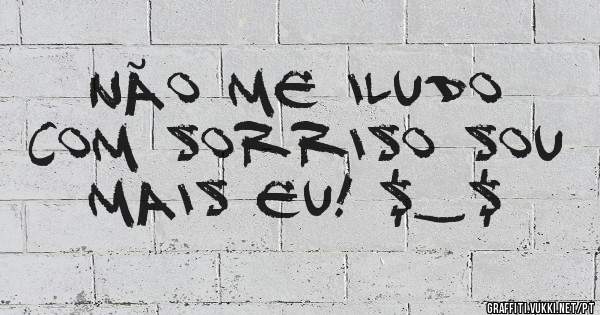 NÃO ME ILUDO
COM SORRISO SOU
MAIS EU! $_$
GRAFFITI.VUKKI.NET/PT